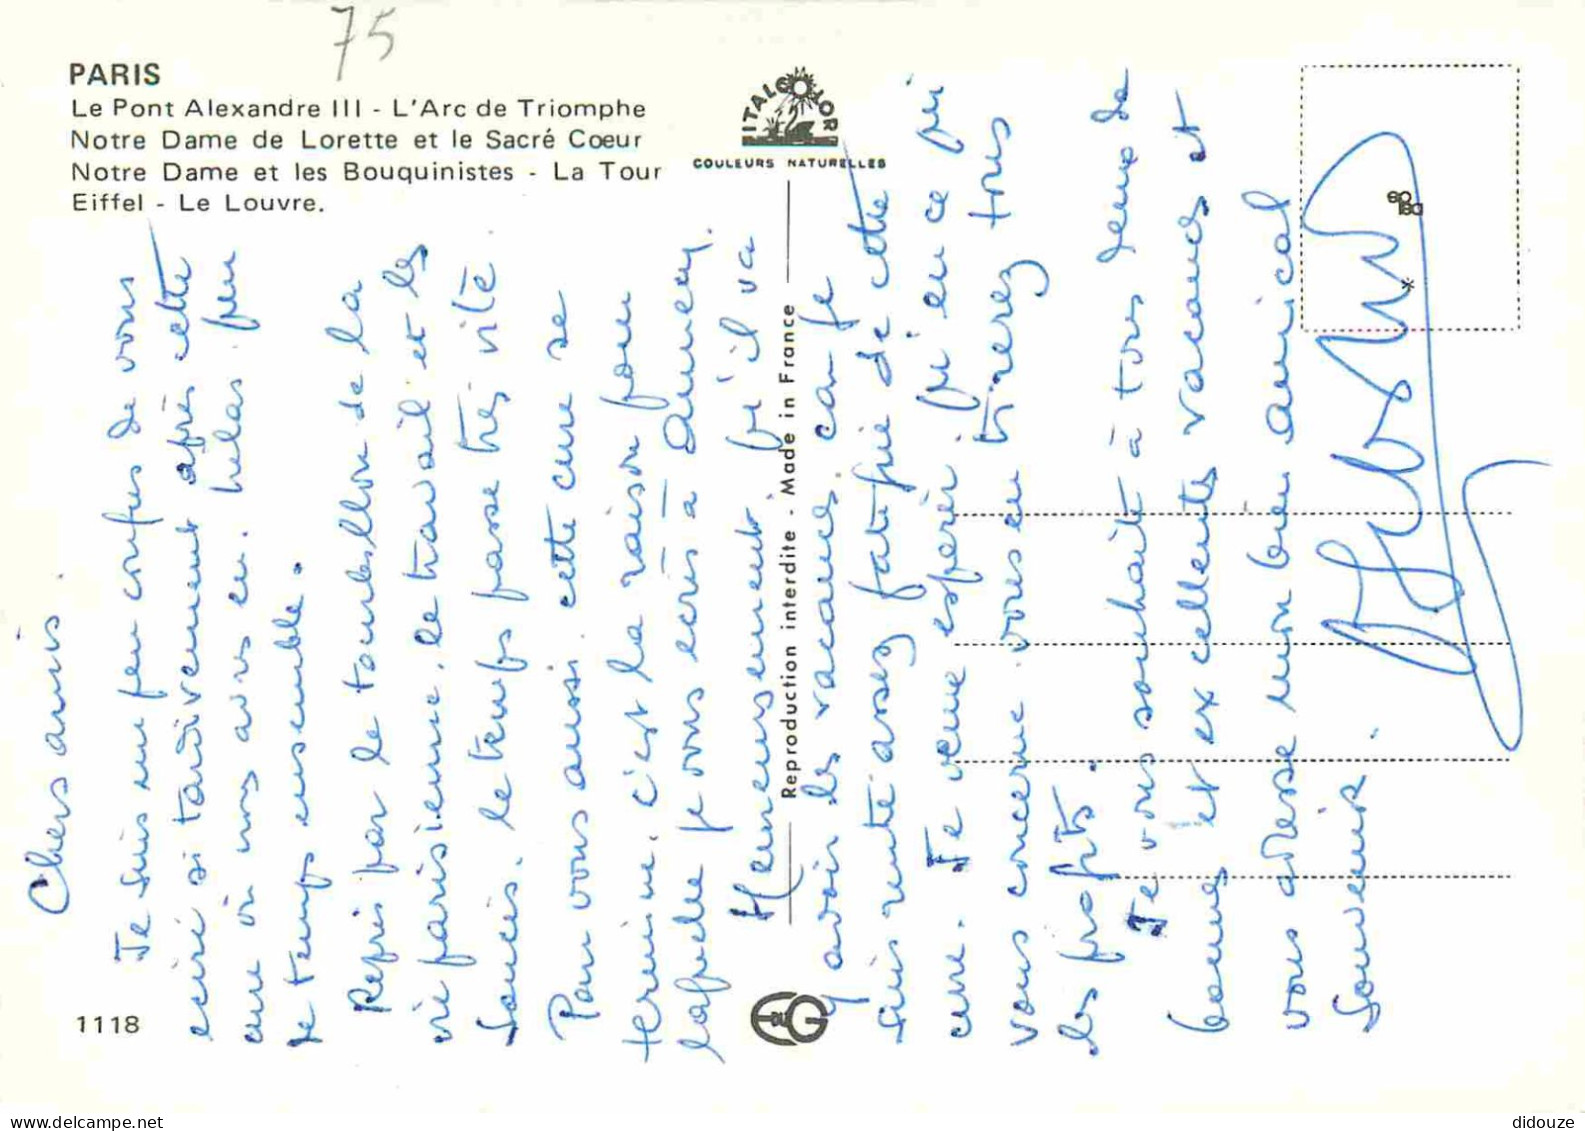 75
PARIS
Le Pont Alexandre III - L'Arc de Triomphe
Notre Dame de Lorette et le Sacré Coeur
Notre Dame et les Bouquinistes - La Tour
Eiffel - Le Louvre.
ITALCOLOR
COULEURS NATURELLES
Reproduction interdite - Made in France
1118
Chers amis.
Je suis un peu confus de vous
écrire si tardivement après cette
cure où nous avons eu. hélas. peu
de temps ensemble.
Repris par le tourbillon de la
vie parisienne, le travail et les
soucis. le temps passe très vite.
Pour vous aussi. cette cure se
termine. c'est la raison pour
laquelle je vous écris à
Heureusement. qu'il va
y avoir les vacances. car je
suis rentré assez fatigué de cette
cure. Je veux espérer. qu'en ce qui
vous concerne. vous en tirerez tous
les profits.
Je vous souhaite à tous deux de
bonnes et excellentes vacances et
vous adresse mon bien amical
souvenir.
didouze